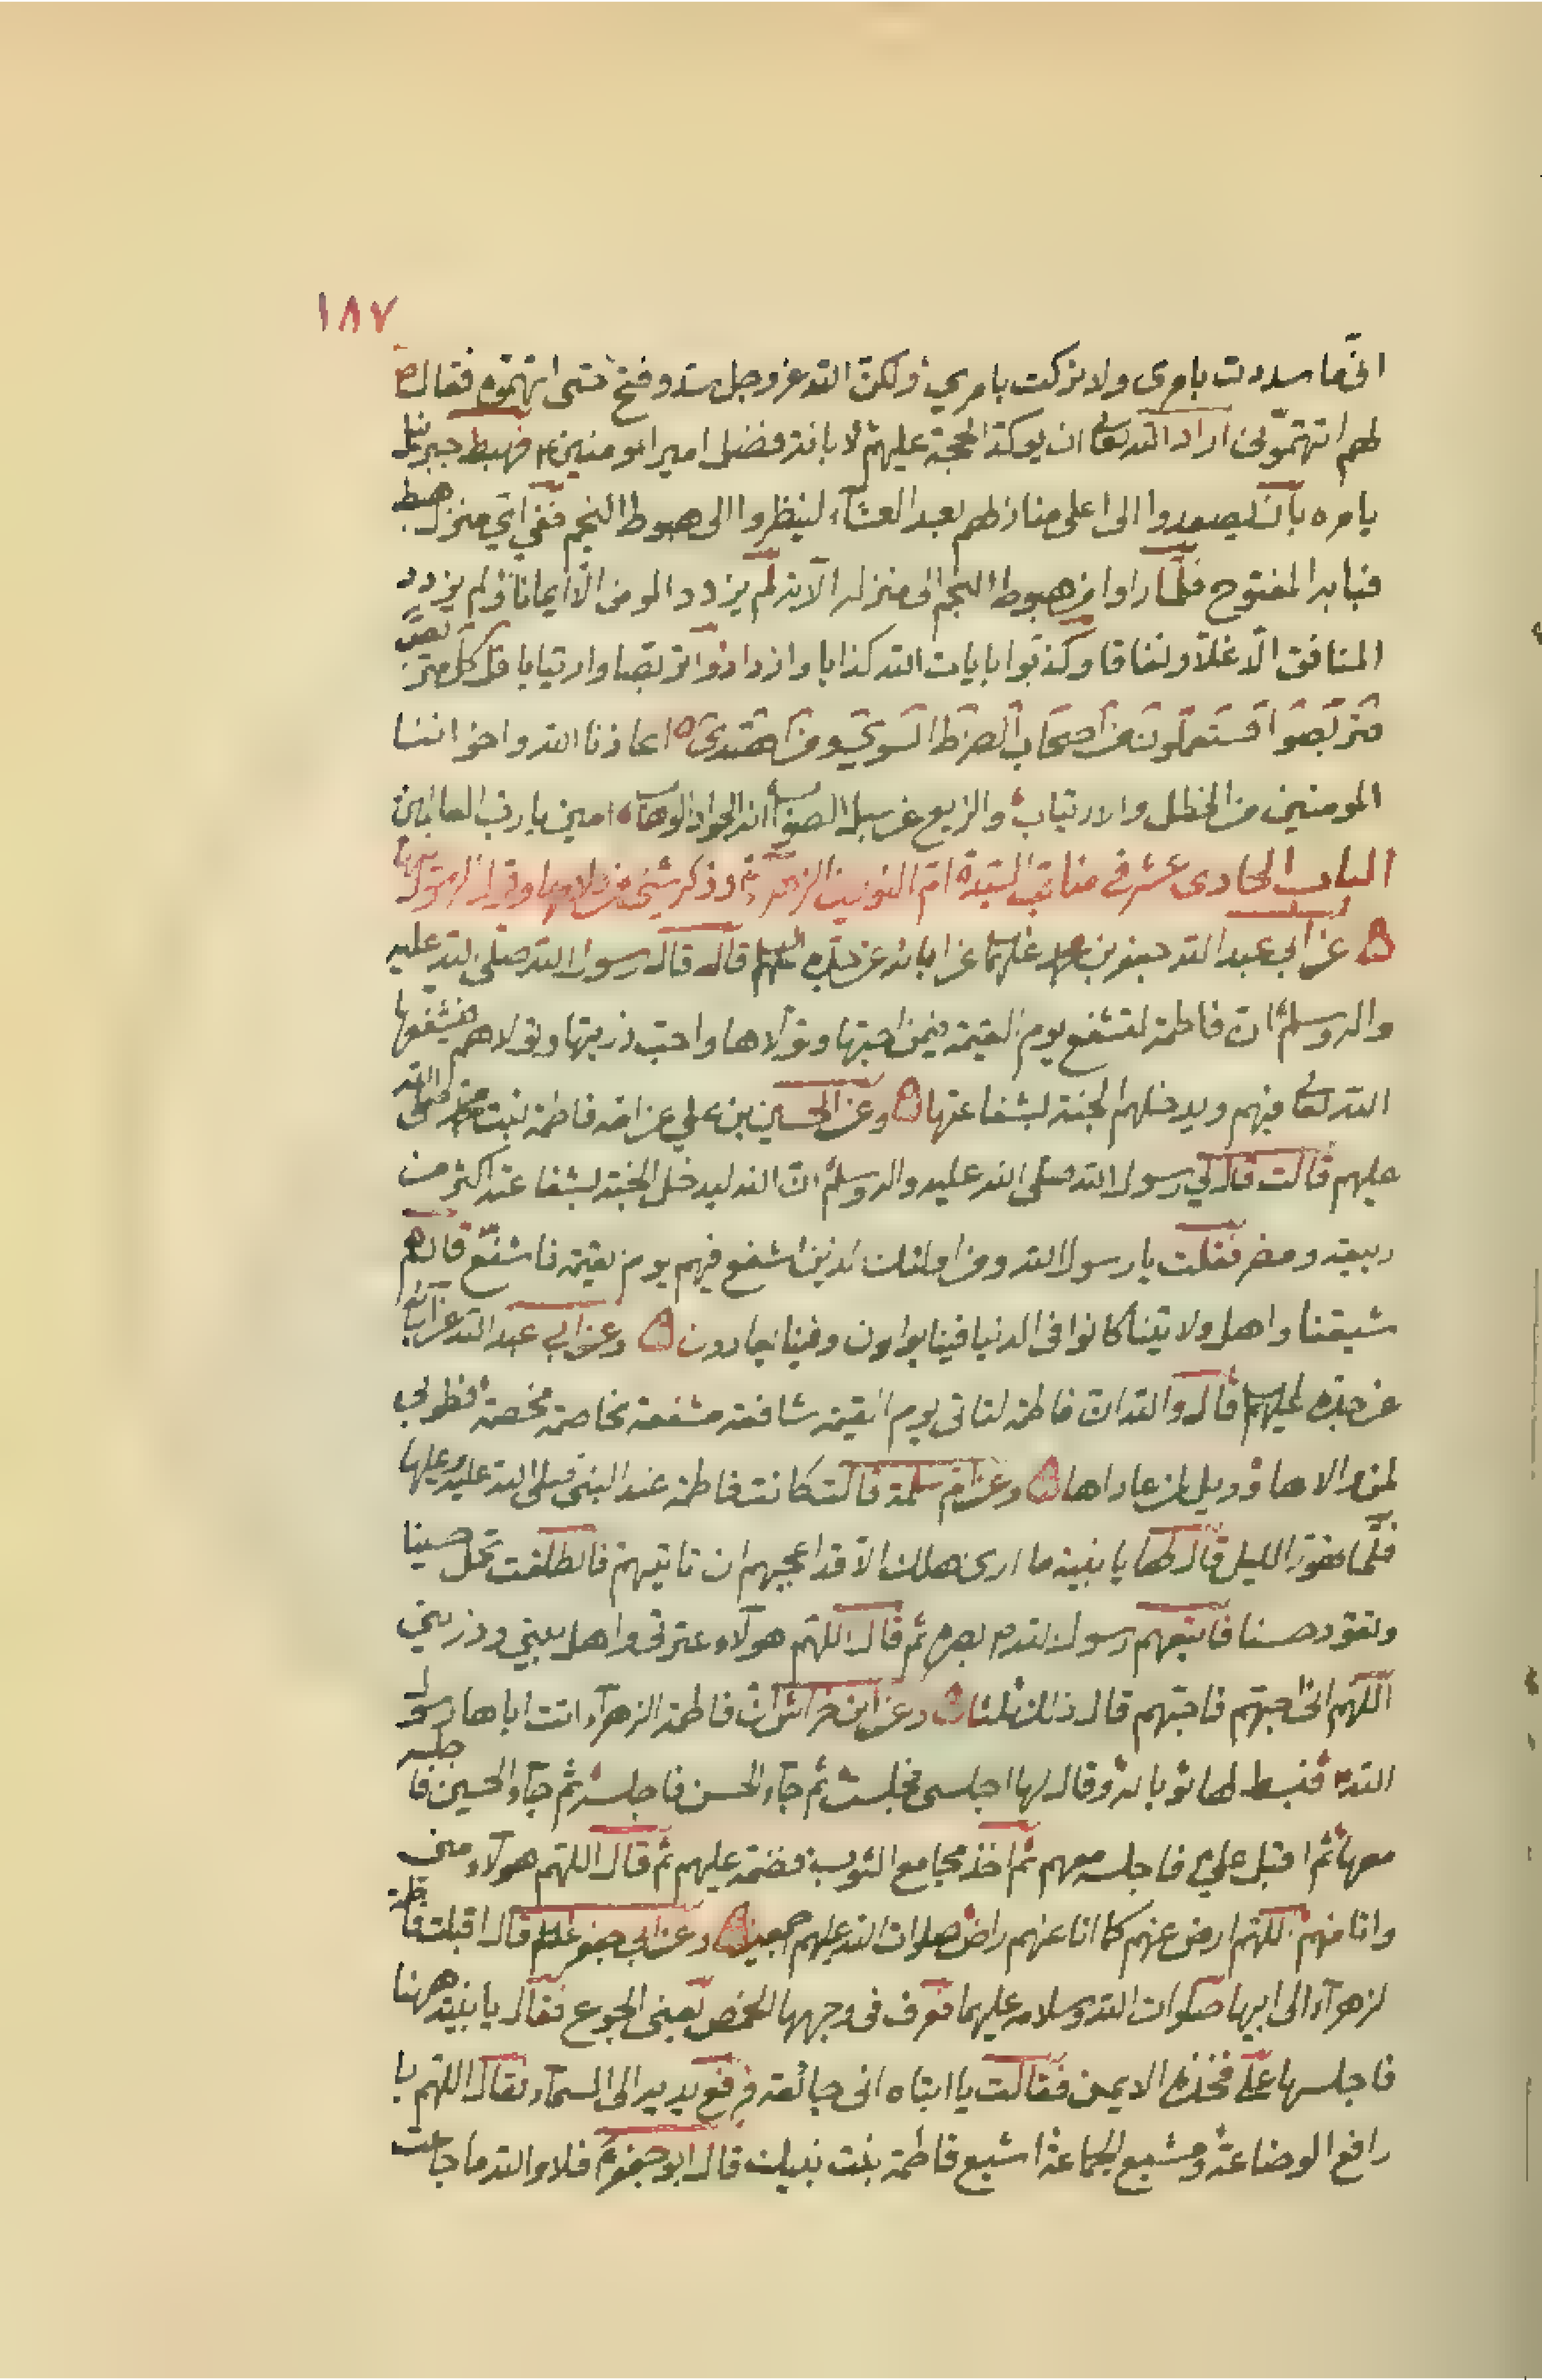 ١٨٧
انى ما سددت بامرى ولا تركت بامري ولكن الله عز وجل سد وفتح متى اتهمتوه فقال ص
لهم اتهمتونى اراد الله تعالى ان يوكد الحجة عليهم لابانة فضل امير المومنين ع فهبط جبرئيل
يامره بان ليصعدوا الى اعلى منازلهم بعد العشاء لينظروا الى هبوط النجم ففى اى منزل هبط
فبابه المفتوح فلما راوا من هبوط النجم الى منزله الآية لم يزدد المومن الا ايمانا ولم يزدد
المنافق الا غلا ونفاقا وكذبوا بايات الله كذابا وازدادوا تربصا وارتيابا قل كل متربص
فتربصوا فستعلمون من اصحاب الصرط السوي ومن اهتدى اعاذنا الله واخواننا
المومنين من الخطل والارتياب والزيغ عن سبل الصواب انه الجواد الوهاب امين يا رب العالمين
الباب الحادى عشر فى مناقب السيدة ام النورين الزهراء وذكر شئ من
عن ابى عبد الله جعفر بن محمد عليهما عن ابائه عن جده عليهم السلم قال قال رسول الله صلى الله عليه
واله وسلم ان فاطمة لتشفع يوم القيمة فيمن احبها وتولاها واحب ذريتها وتولاهم فيشفعها
الله تعالى فيهم ويدخلهم الجنة بشفاعتها وعن الحسين بن علي عن امه فاطمة بنت محمد صلى الله
عليهم قالت قال لي رسول الله صلى الله عليه واله وسلم ان الله ليدخل الجنة بشفاعتك اكثر من
ربيعة ومضر فقلت يا رسول الله ومن اولئك الذين اشفع فيهم يوم القيمة فاشفع قال هم
شيعتنا واهل ولايتنا كانوا فى الدنيا فينا يوالون وفينا يعادون وعن ابى عبد الله عن ابائه
عن جده عليهم السلم قال والله ان فاطمة لتاتى يوم القيمة شافعة مشفعة مخاصمة مخصمة فطوبى
لمن والاها وويل لمن عاداها وعن ام سلمة قالت كانت فاطمة عند النبى صلى الله عليه وعليها
فلما تهور الليل قال لها يا بنية ما ارى هلك الا قد اعجبهم ان تاتيهم فانطلقت تحمل حسينا
وتقود حسنا فاتبعهم رسول الله ص بصره ثم قال اللهم هولاء عترتى واهل بيتي وذريتي
اللهم انى احبهم فاحبهم قال ذلك ثلثا وعن ابن خراش ان فاطمة الزهراء اتت اباها رسول
الله ص فبسط لها ثوبا له وقال لها اجلسى فجلست ثم جاء الحسن فاجلسه ثم جاء الحسين فاجلسه
معها ثم اقبل علي ع فاجلسه معهم ثم اخذ مجامع الثوب فضمه عليهم ثم قال اللهم هولاء منى
وانا منهم اللهم ارض عنهم كما انا عنهم راض صلوات الله عليهم اجمعين وعن ابى جعفر عليه السلم قال اقبلت فاطمة
لزهراء الى ابيها صلوات الله وسلامه عليهما فعرف فى وجهها الخمص يعنى الجوع فقال يا بنية ههنا
فاجلسها على فخذه الايمن فقالت يا ابتاه انى جائعة فرفع يديه الى السماء فقال اللهم يا
رافع الوضاعة ومشبع الجماعة اشبع فاطمة بنت نبيك قال ابو جعفر ع فلا والله ما جاعت